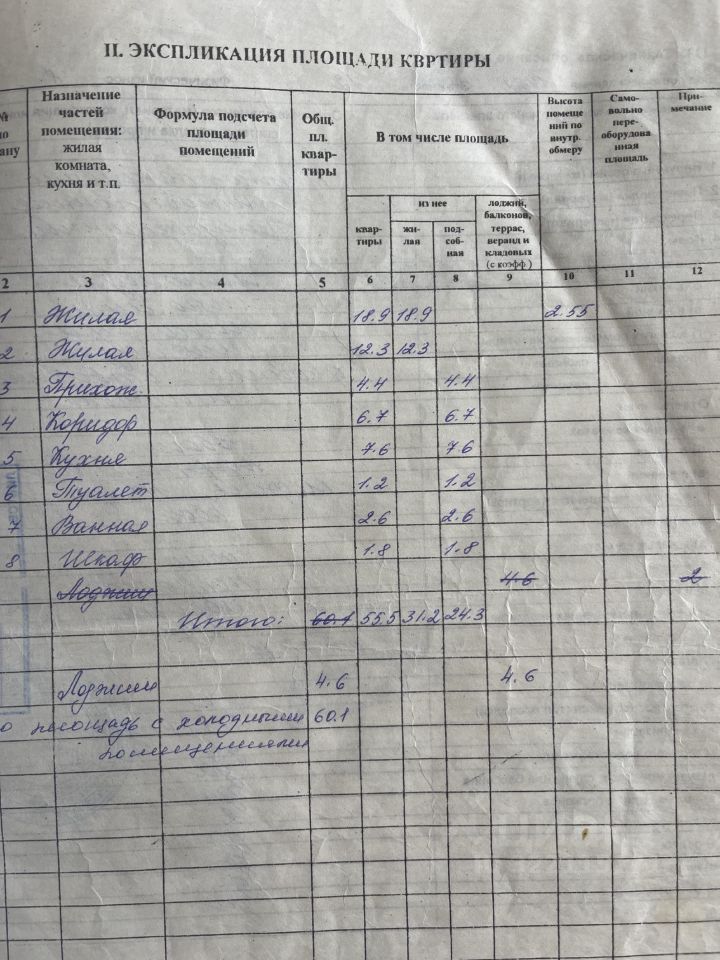 II. ЭКСПЛИКАЦИЯ ПЛОЩАДИ КВРТИРЫ
№ по ану
Назначение частей помещения: жилая комната, кухня и т.п.
Формула подсчета площади помещений
Общ. пл. квар- тиры
В том числе площадь
Высота помеще ний по внутр. обмеру
Само- вольно пере- оборудова нная площадь
При- мечание
квар- тиры
из нее
жи- лая
под- соб- ная
лоджий, балконов, террас, веранд и кладовых (с коэфф)
2 3 4 5 6 7 8 9 10 11 12
1 Жилая 18.9 18.9 2.55
2 Жилая 12.3 12.3
3 Прихож. 4.4 4.4
4 Коридор 6.7 6.7
5 Кухня 7.6 7.6
6 Туалет 1.2 1.2
7 Ванная 2.6 2.6
8 Шкаф 1.8 1.8
Лоджии 4.6 2
Итого: 60.1 55.5 31.2 24.3
Лоджии 4.6 4.6
о площадь с холодными 60.1
помещениями